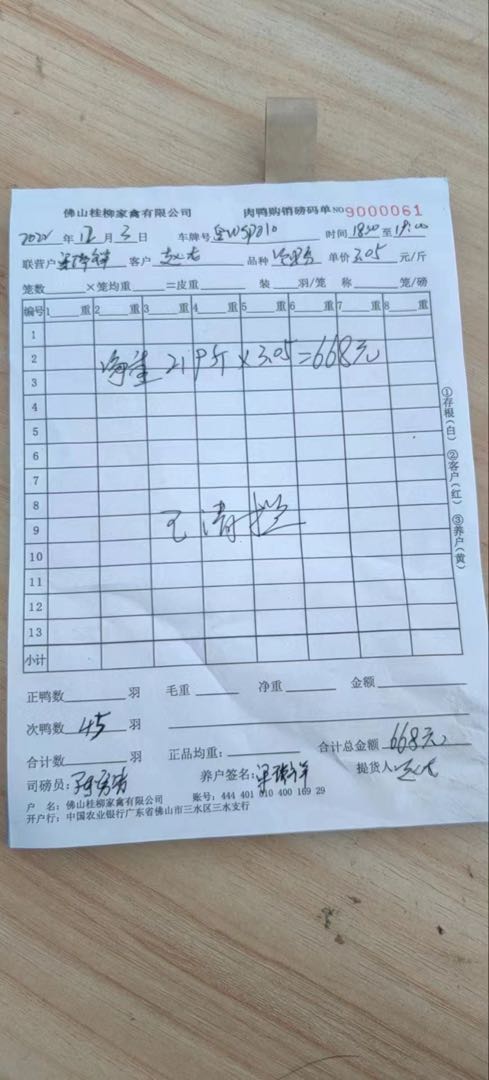 佛山桂柳家禽有限公司 肉鸭购销磅码单 NO 9000061
2022 年 12 月 3 日 车牌号 时间 18:30 至 19:00
联营户 客户 赵龙 品种 单价 3.05 元/斤
笼数 ×笼均重 =皮重 装 羽/笼 称 笼/磅
编号 1 重 2 重 3 重 4 重 5 重 6 重 7 重 8 重
1
2
净重 219斤×3.05=668元
3
4
5
6
7
8
已清栏
9
10
11
12
13
小计
①存根(白) ②客户(红) ③养户(黄)
正鸭数 羽 毛重 净重 金额
次鸭数 45 羽
合计数 羽 正品均重: 合计总金额 668元
司磅员: 养户签名: 提货人: 赵龙
户 名: 佛山桂柳家禽有限公司 账号: 444 401 010 400 169 29
开户行: 中国农业银行广东省佛山市三水区三水支行